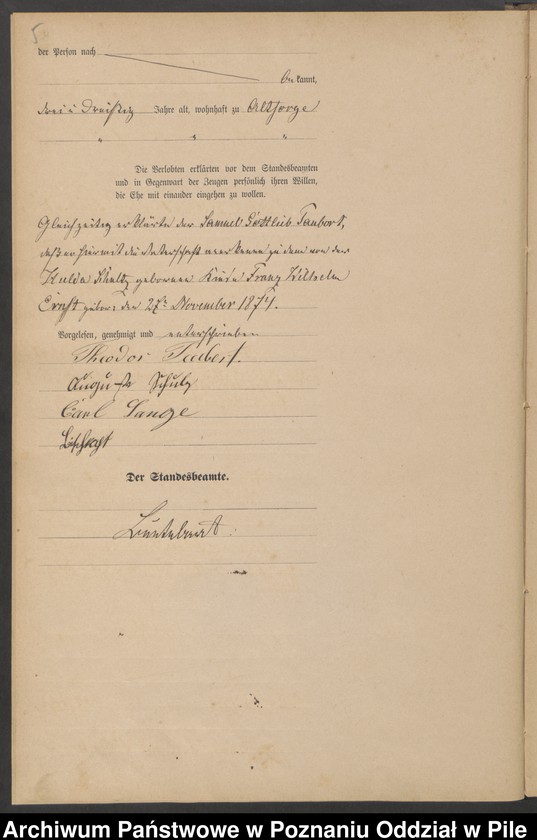 5
der Person nach
be kannt,
drei u dreißig Jahre alt, wohnhaft zu
" " "
Die Verlobten erklärten vor dem Standesbeamten
und in Gegenwart der Zeugen persönlich ihren Willen,
die Ehe mit einander eingehen zu wollen.
Gleichzeitig erklärte der Samuel Gottlieb Taubert,
daß er hiermit die Vaterschaft anerkenne zu dem von der
geborenen Kinde Franz Wilhelm
Ernst gebor. den 27. November 1874.
Vorgelesen, genehmigt und unterschrieben
Theodor Taubert.
Auguste Schulz
Carl Lange
Der Standesbeamte.
Archiwum Państwowe w Poznaniu Oddział w Pile